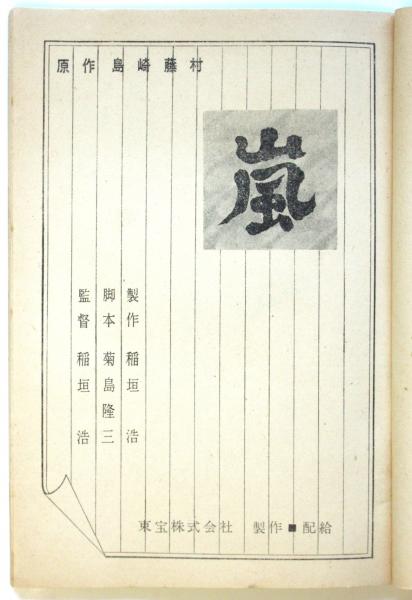 原作島崎藤村
嵐
製作 稲垣浩
脚本 菊島隆三
監督 稲垣浩
東宝株式会社 製作■配給